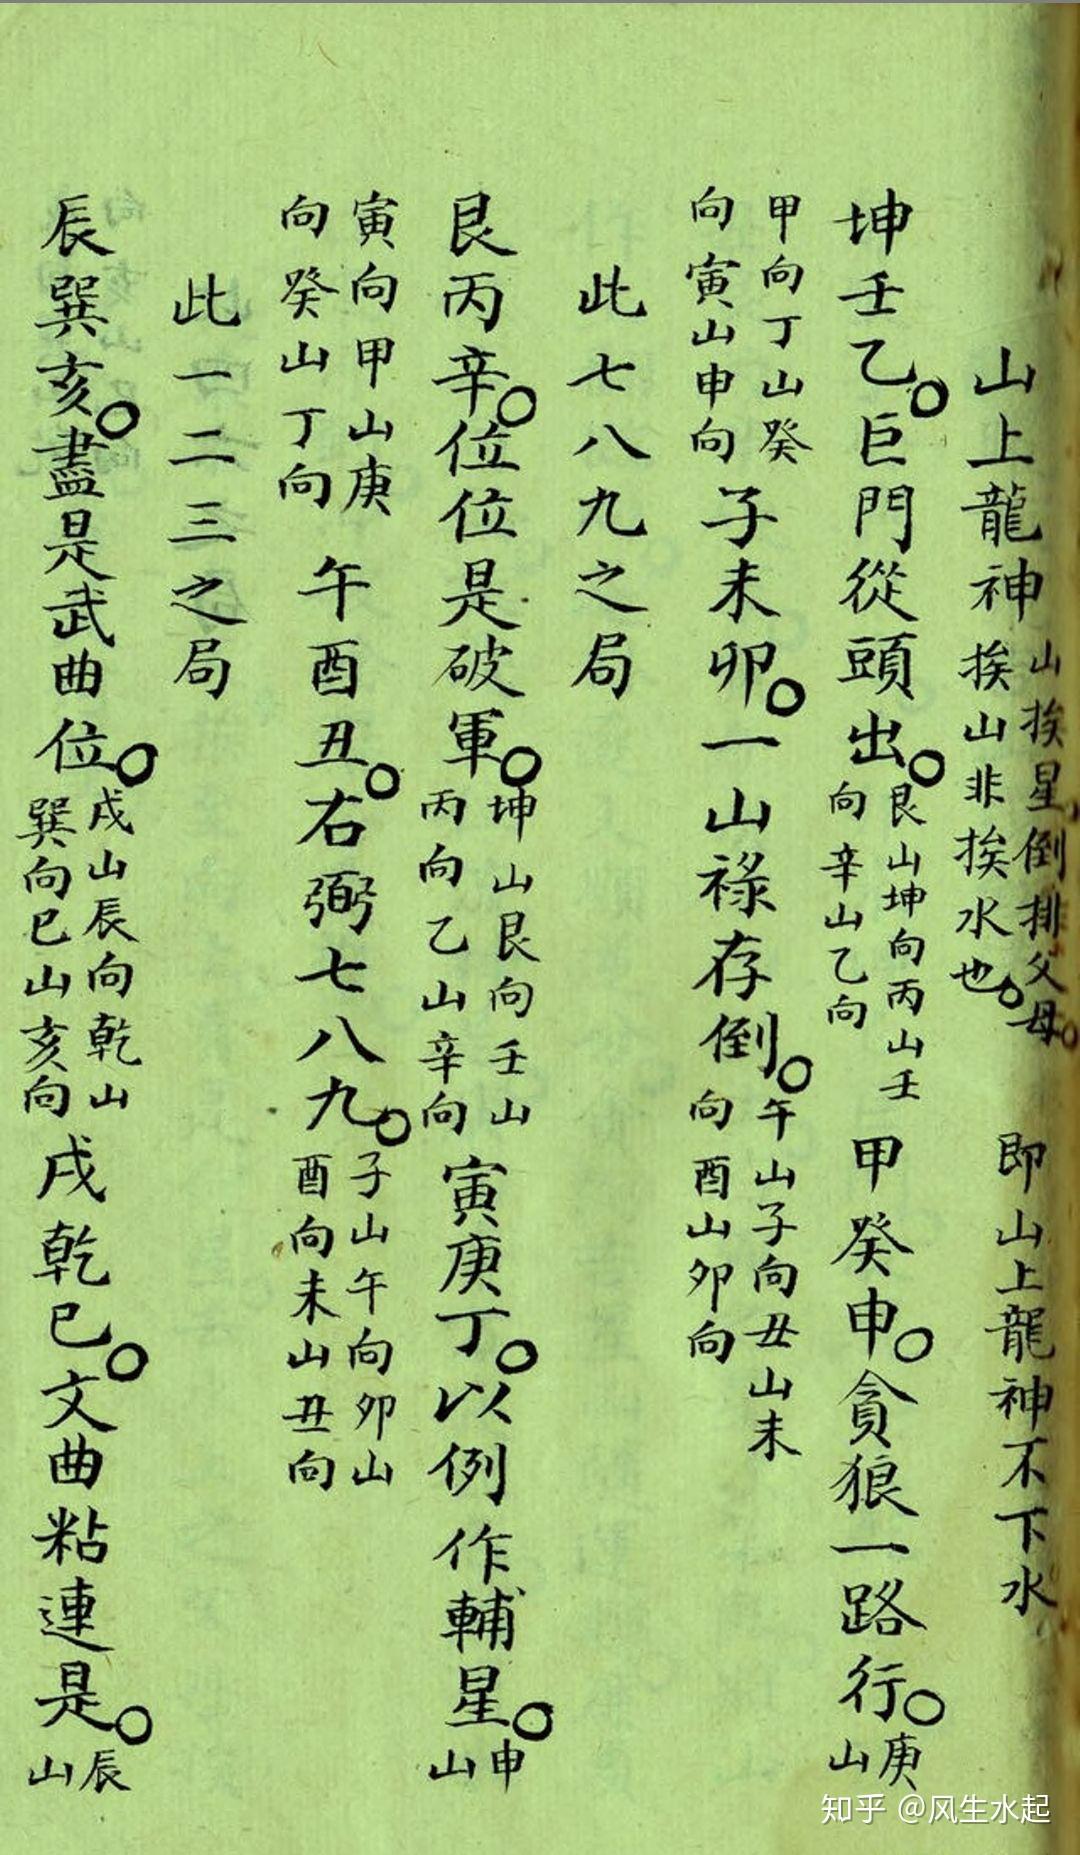 山上龍神山挨星倒排父母。挨山非挨水也。即山上龍神不下水
坤壬乙。巨門從頭出。艮山坤向丙山壬向辛山乙向甲癸申。貪狼一路行。庚山
甲向丁山癸向寅山申向子未卯。一山祿存倒。午山子向丑山未向酉山卯向
此七八九之局
艮丙辛。位位是破軍。坤山艮向壬山丙向乙山辛向寅庚丁。以例作輔星。申山
寅向甲山庚向癸山丁向午酉丑。右弼七八九。子山午向卯山酉向未山丑向
此一二三之局
辰巽亥。盡是武曲位。戌山辰向乾山巽向巳山亥向戌乾巳。文曲粘連是。辰山
知乎 @风生水起